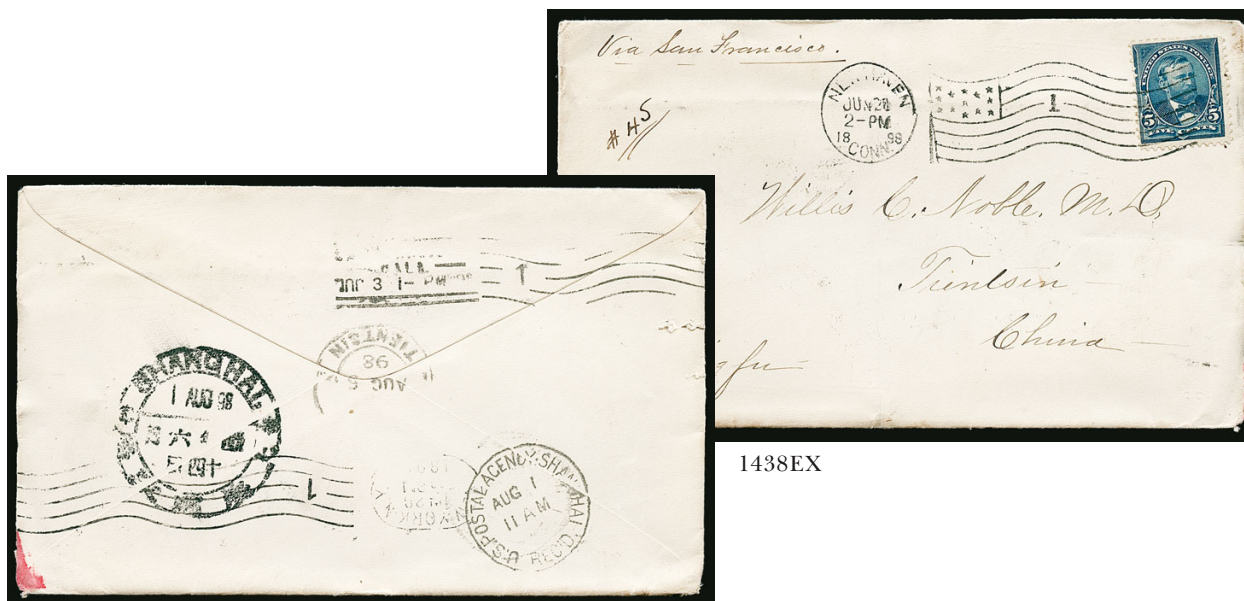 Via San Francisco.
# 45
NEW HAVEN
JUN 28
2-PM
18 98
CONN.
1
UNITED STATES POSTAGE
5 FIVE CENTS 5
Willis C. Noble. M.D.
Tientsin
China
1438EX
JUL 3 1-PM
1
TIENTSIN
AUG 5
98
SHANGHAI
1 AUG 98
六
四十
1
U.S. POSTAL AGENCY. SHANGHAI.
AUG 1
11 AM
REC'D.